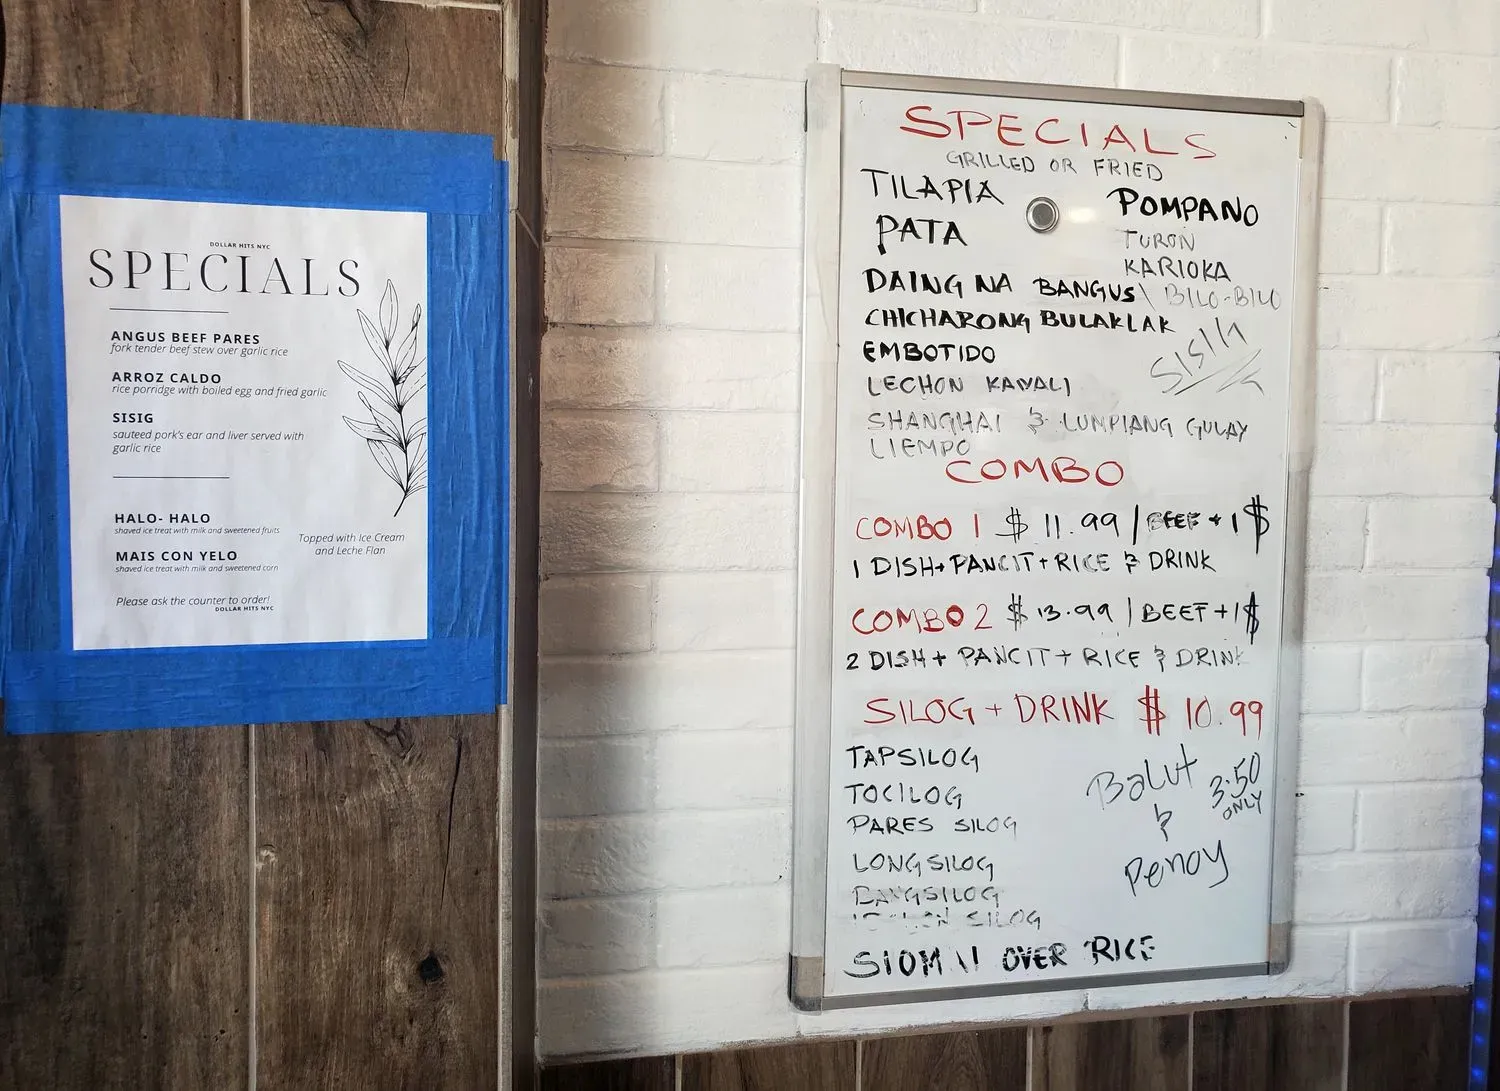 DOLLAR HITS NYC
SPECIALS
ANGUS BEEF PARES
fork tender beef stew over garlic rice
ARROZ CALDO
rice porridge with boiled egg and fried garlic
SISIG
sauteed pork's ear and liver served with
garlic rice
HALO- HALO
shaved ice treat with milk and sweetened fruits
MAIS CON YELO
shaved ice treat with milk and sweetened corn
Topped with Ice Cream
and Leche Flan
Please ask the counter to order!
DOLLAR HITS NYC
SPECIALS
GRILLED OR FRIED
TILAPIA
POMPANO
PATA
TURON
KARIOKA
DAING NA BANGUS \ BILO-BILO
CHICHARONG BULAKLAK
EMBOTIDO
LECHON KAWALI
SHANGHAI & LUMPIANG GULAY
LIEMPO
COMBO
COMBO 1 $ 11.99 / BEEF + 1$
1 DISH+PANCIT+RICE & DRINK
COMBO 2 $ 13.99 / BEEF +1$
2 DISH + PANCIT + RICE & DRINK
SILOG + DRINK $ 10.99
TAPSILOG
TOCILOG
PARES SILOG
LONGSILOG
BANGSILOG
SILOG
SIOMAI OVER RICE
Balut
&
Penoy
3.50
ONLY